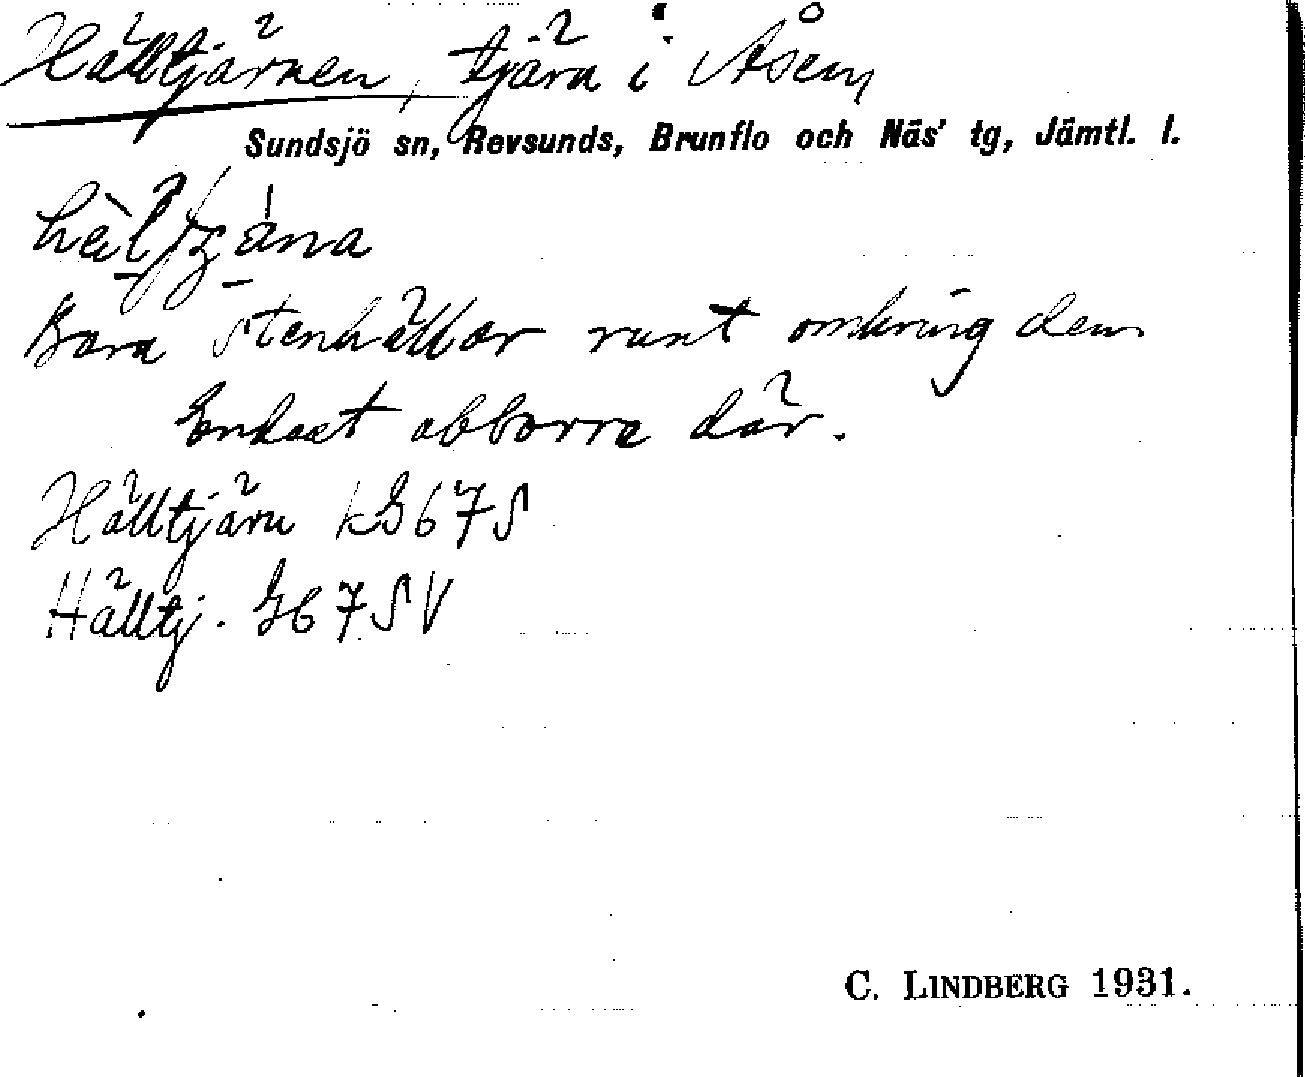 Hälltjärnen, tjärn i Åsen,
Sundsjö sn, Revsunds, Brunflo och Näs' tg, Jämtl. l.
Bara stenhällar runt omkring den
Endast abborre där.
Hälltjärn kG67S
Hälltj. G67SV
C. LINDBERG 1931.